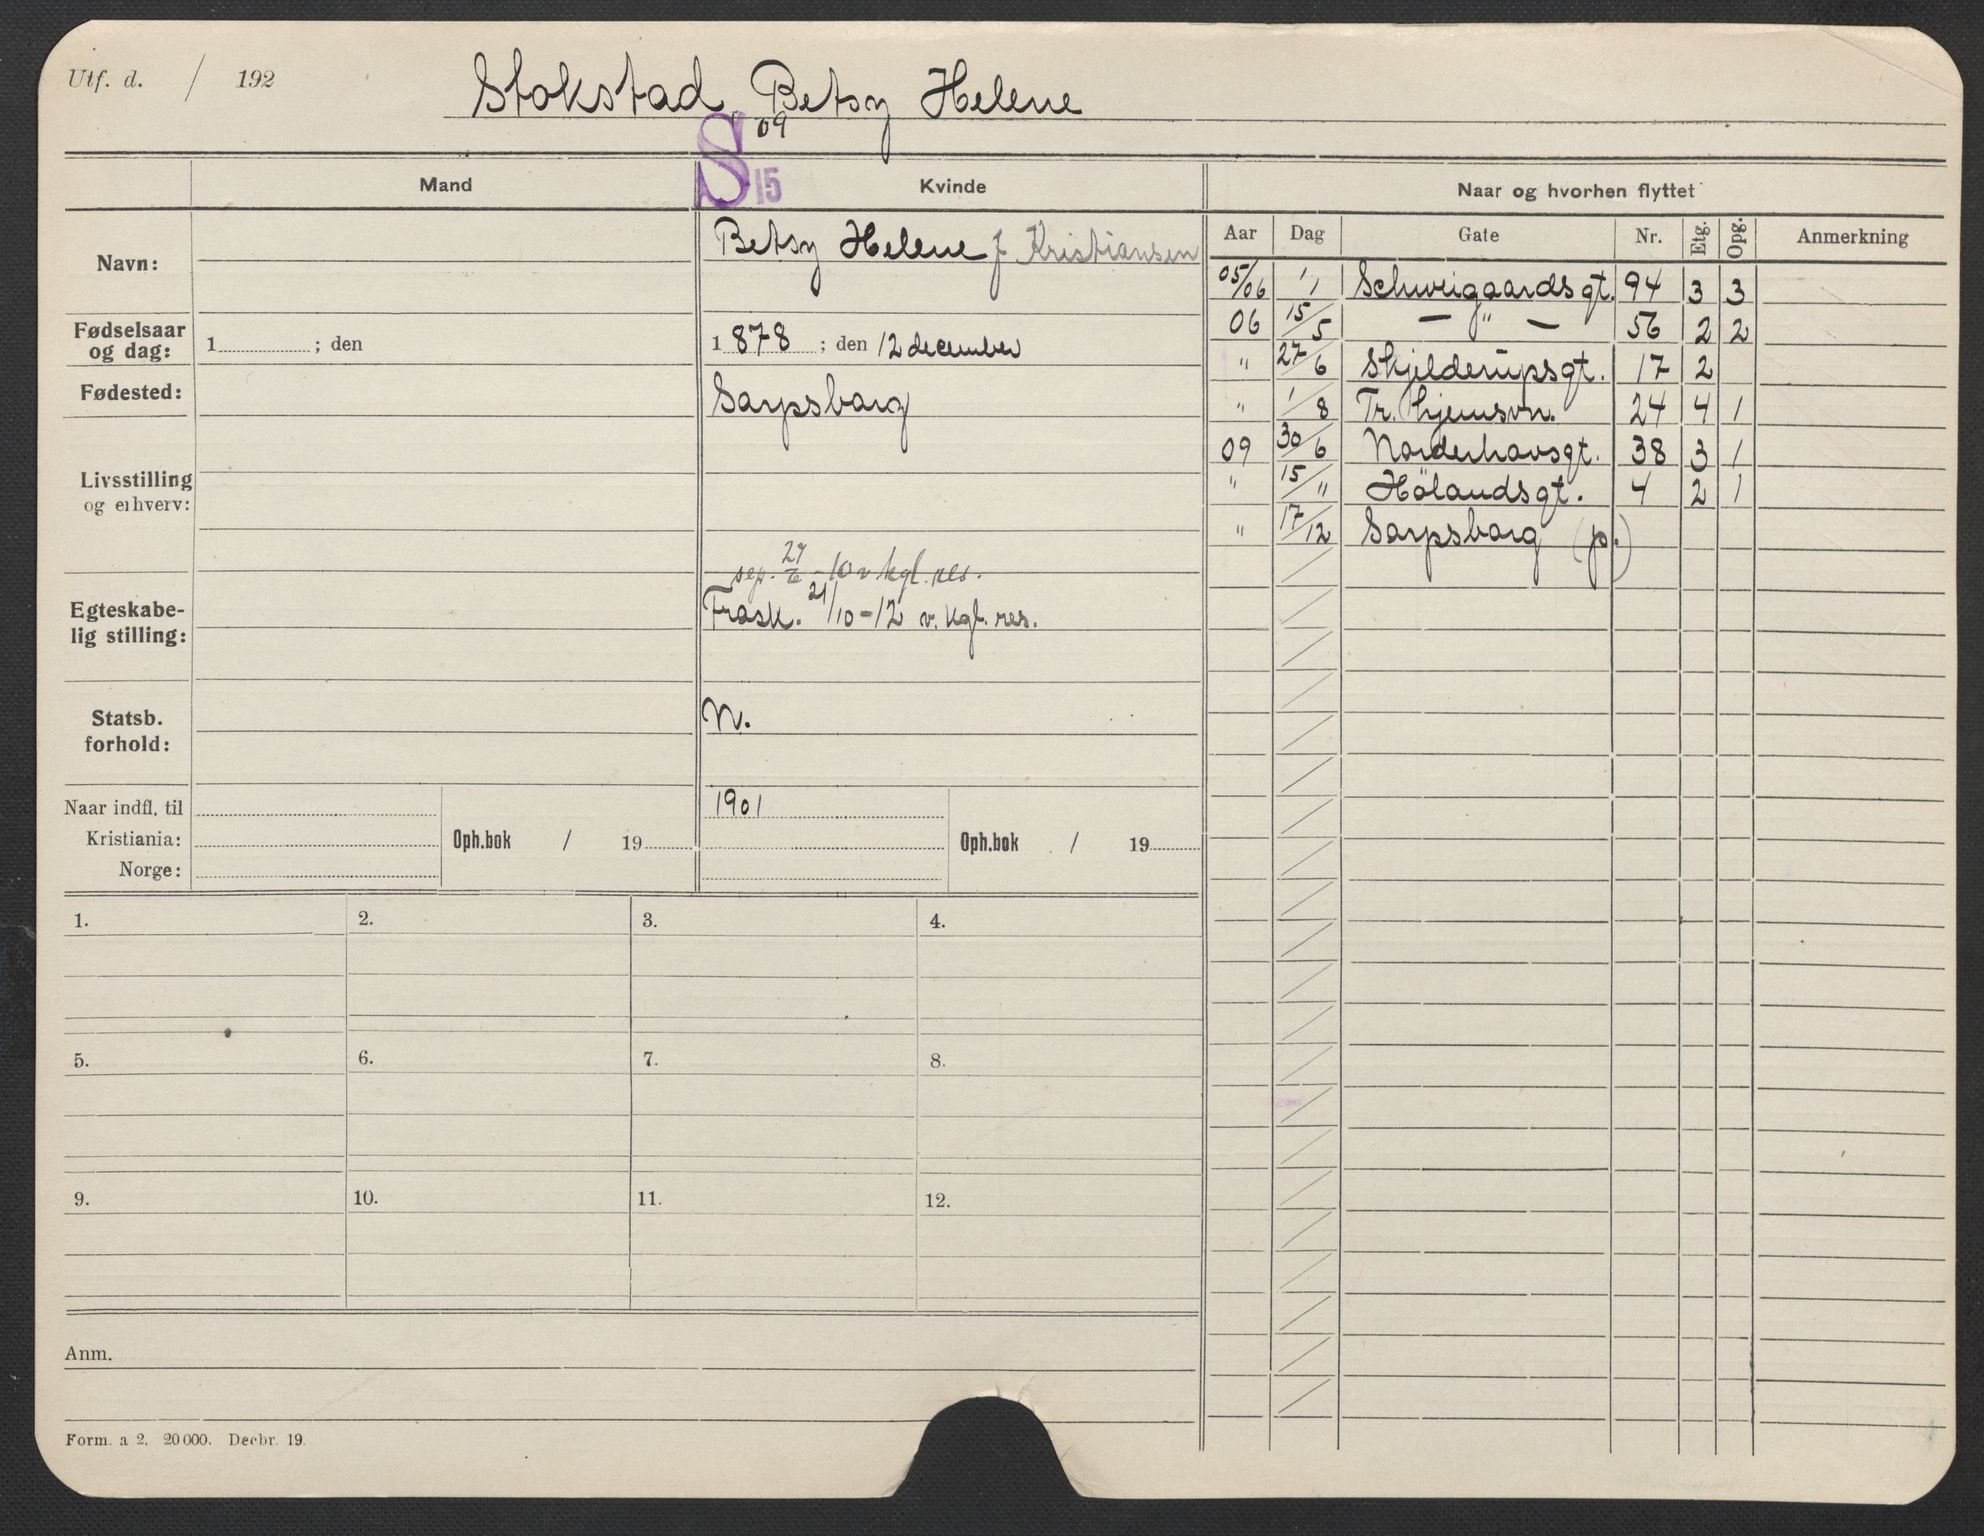 Utf. d. / 192 Stokstad, Betsy Helene
09
S 15
Mand Kvinde Naar og hvorhen flyttet
Aar Dag Gate Nr. Etg. Opg. Anmerkning
Navn: Betsy Helene f Kristiansen
Fødselsaar og dag: 1 ; den 1 878 ; den 12 december
Fødested: Sarpsborg
Livsstilling
og erhverv:
sep. 27/6 -10 v kgl. res.
Egteskabe-
lig stilling: Frask. 21/10-12 v. kgl. res.
Statsb.
forhold: N.
Naar indfl. til 1901
Kristiania: Oph.bok / 19 Oph.bok / 19
Norge:
05/06 1/1 Schweigaardsgt. 94 3 3
06 15/5 — " — 56 2 2
" 27/6 Skjelderupsgt. 17 2
" 1/8 Tr.hjemsvn. 24 4 1
09 30/6 Norderhovsgt. 38 3 1
" 15/" Hölandsgt. 4 2 1
" 17/12 Sarpsborg (p.)
1. 2. 3. 4.
5. 6. 7. 8.
9. 10. 11. 12.
Anm.
Form. a 2. 20 000. Decbr. 19.